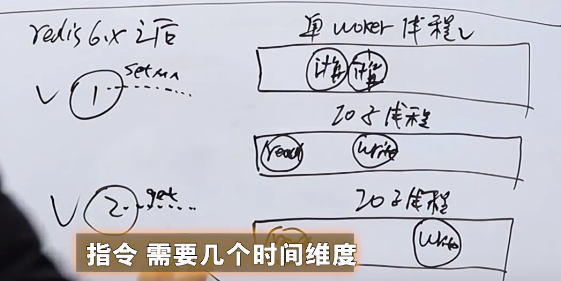 redis 6.x 之后
单 woker 线程
① setnx
计算 计算
IO子线程
read write
② get
IO子线程
write
指令 需要几个时间维度